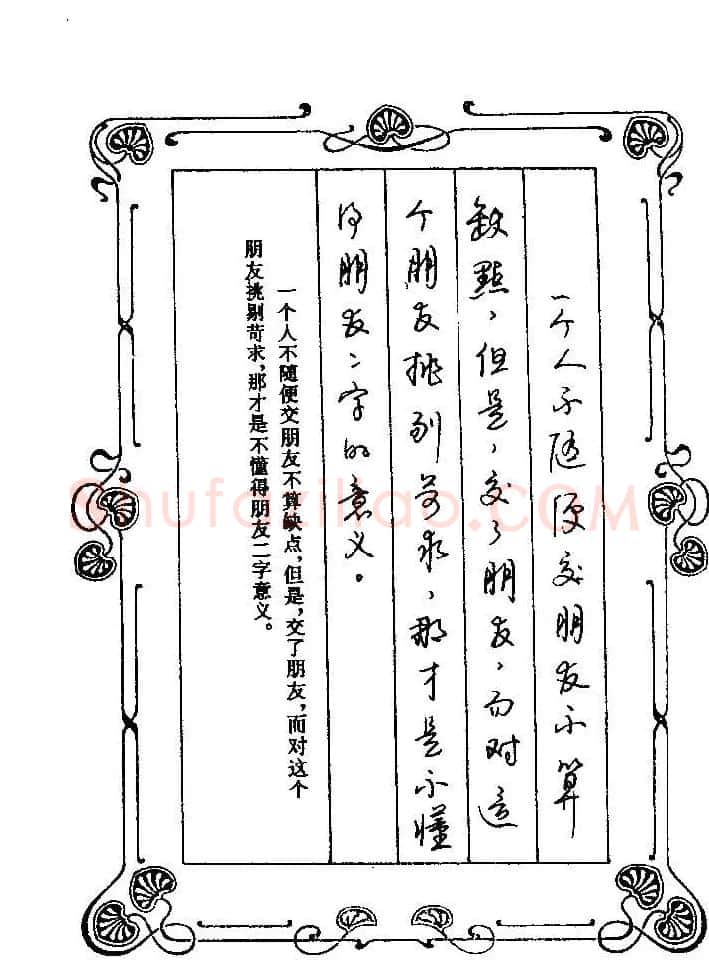 一个人不随便交朋友不算
缺點，但是，交了朋友，而对這
个朋友挑剔苛求，那才是不懂
得朋友二字的意义。
一个人不随便交朋友不算缺点，但是，交了朋友，而对这个
朋友挑剔苛求，那才是不懂得朋友二字意义。
Shufaziliao.COM